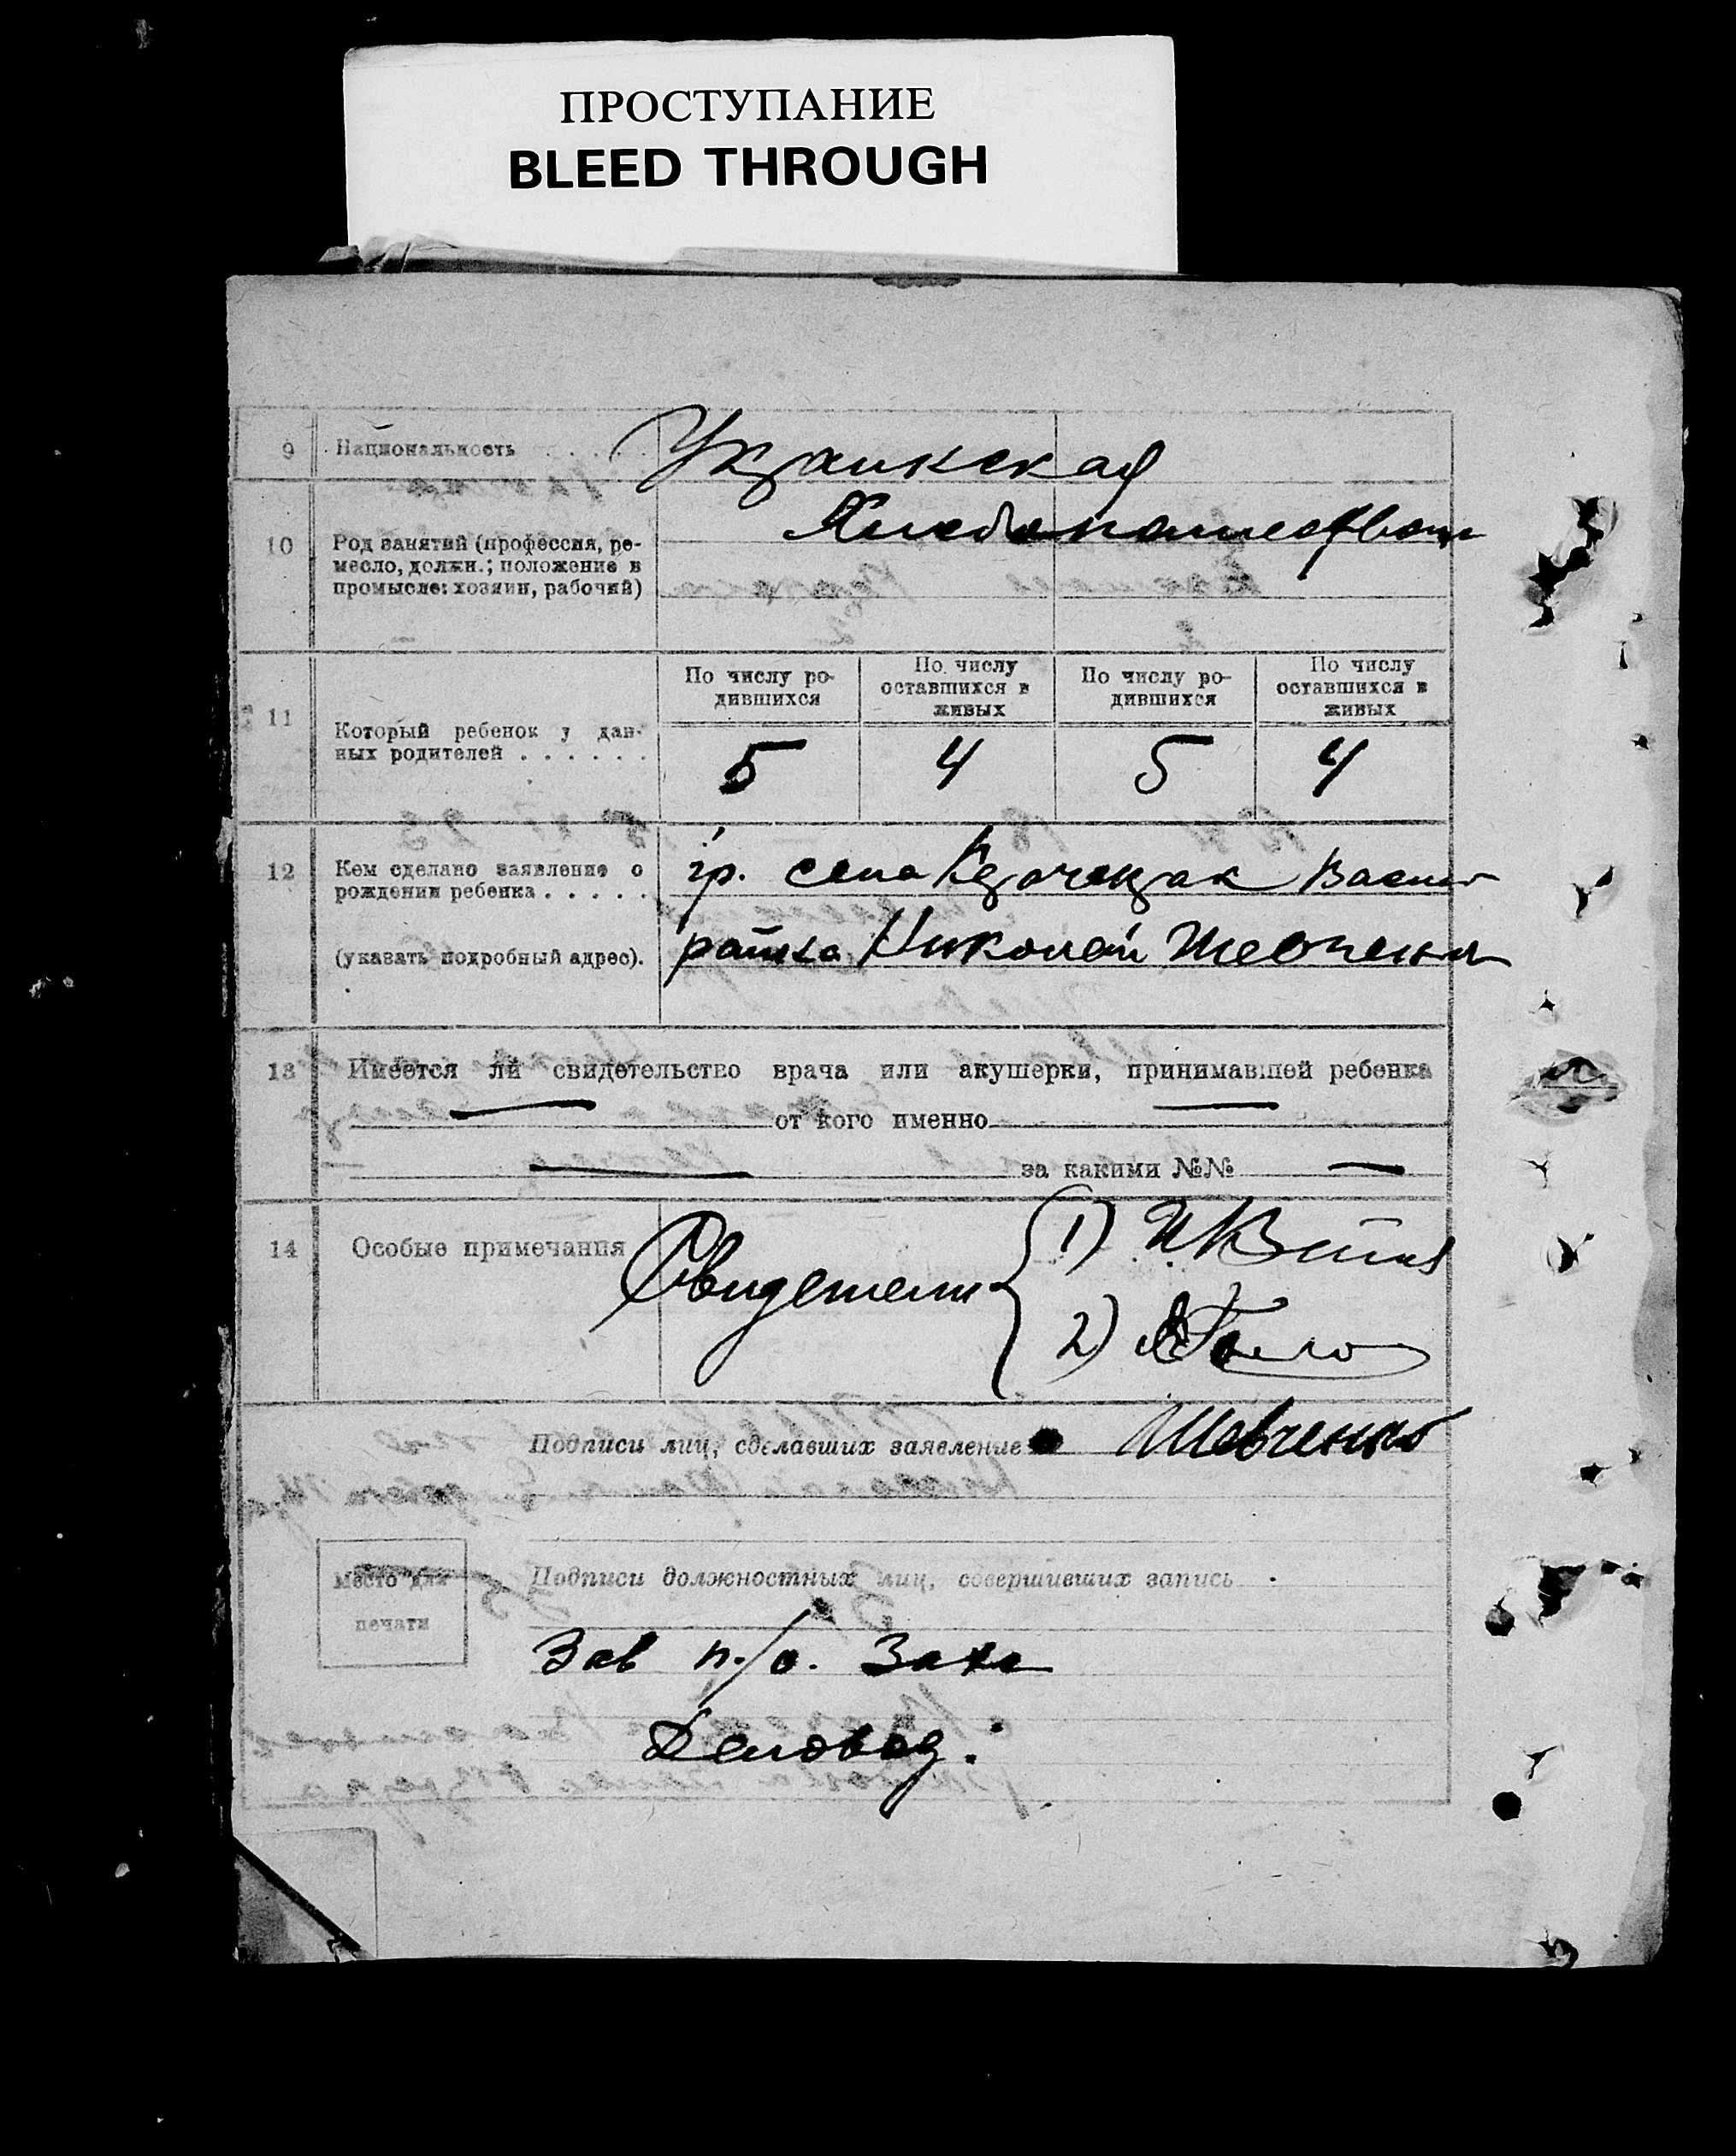 ПРОСТУПАНИЕ
BLEED THROUGH
9 Национальность . . . . . Украинская
10 Род занятий (профессия, ре-
месло, должн.; положение в
промысле: хозяин, рабочий)
Хлебопашеством
11 Который ребенок у дан-
ных родителей . . . . . .
По числу ро-
дившихся
По числу
оставшихся в
живых
По числу ро-
дившихся
По числу
оставшихся в
живых
5 4 5 4
12 Кем сделано заявление о
рождении ребенка . . . . .
(указать подробный адрес).
гр. села
Николай Шевченко
13 Имеется ли свидетельство врача или акушерки, принимавшей ребенка
— от кого именно —
— за какими №№ —
14 Особые примечания
Свидетели
1)
2)
Подписи лиц, сделавших заявление Шевченко
Место для
печати
Подписи должностных лиц, совершивших запись
Зав п/о. Загса
Деловод: